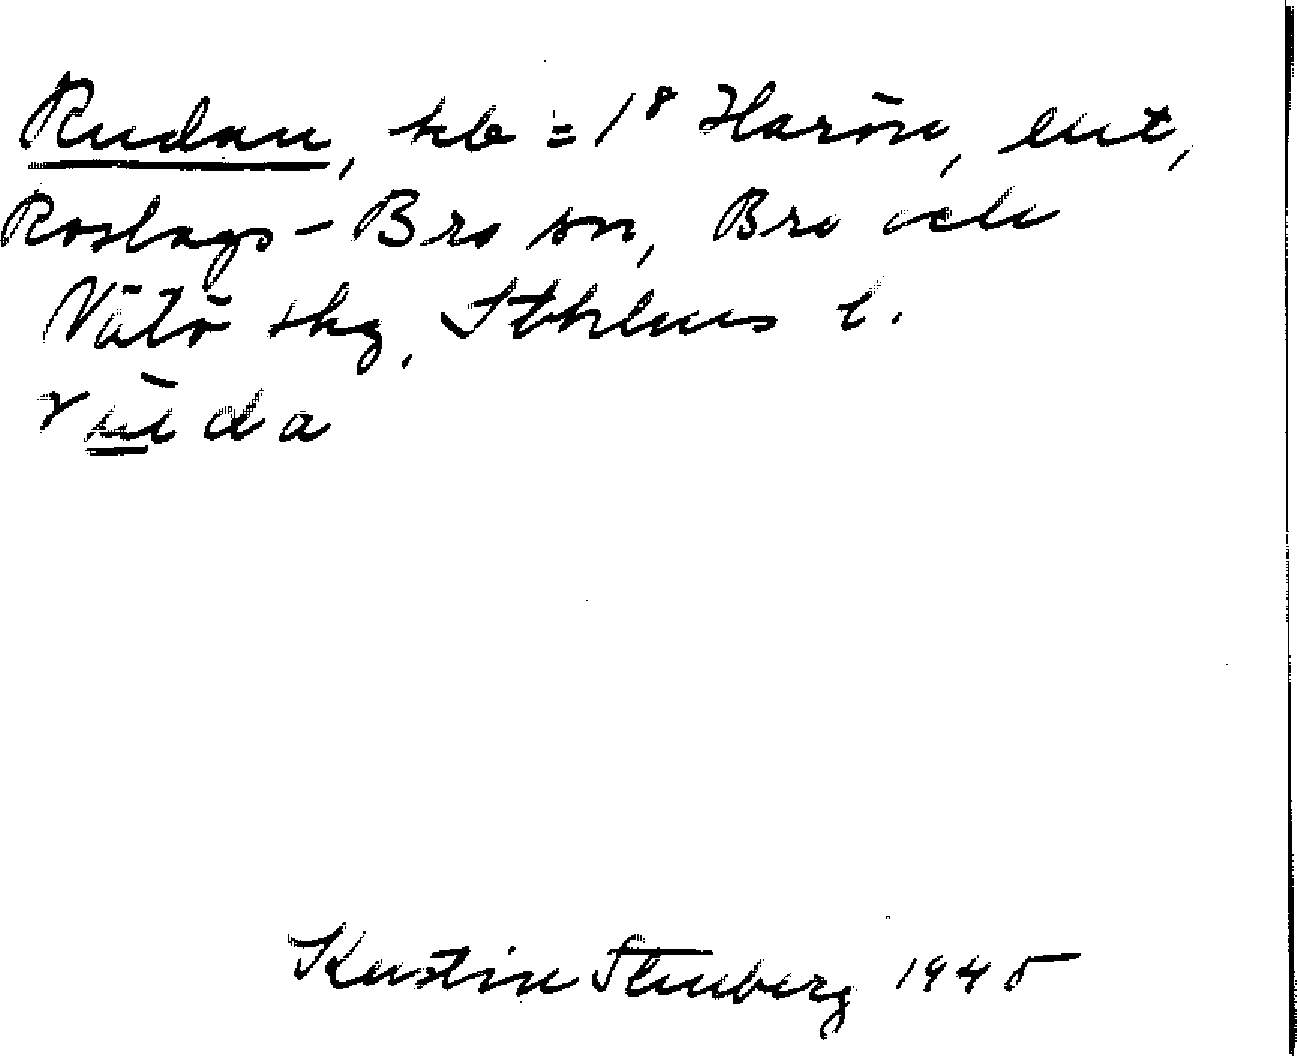 Rudan, hb = 1⁸ Harön, ent,
Roslags-Bro sn, Bro och
Vätö skg, Sthlms l.
Kerstin Stenberg 1945